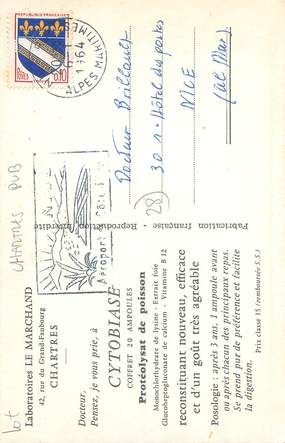 REPUBLIQUE FRANCAISE
0,10
1964
ALPES-MARITIMES
Aéroport
Docteur Brillault
30 r. Hôtel des postes
NICE
(Al. Mar.)
(28)
CHARTRES PUB
lot
Laboratoires LE MARCHAND
42, rue du Grand-Faubourg
CHARTRES
Docteur,
Pensez, je vous prie, à
CYTOBIASE
COFFRET 20 AMPOULES
Protéolysat de poisson
Monochlorhydrate de lysine - Extrait foie
Glucoheptogluconate de calcium - Vitamine B 12
reconstituant nouveau, efficace
et d'un goût très agréable
Posologie : après 3 ans, 1 ampoule avant
ou après chacun des principaux repas.
Se prend pur de préférence et facilite
la digestion.
Prix classe 15 (remboursée S.S.)
Fabrication française - Reproduction interdite